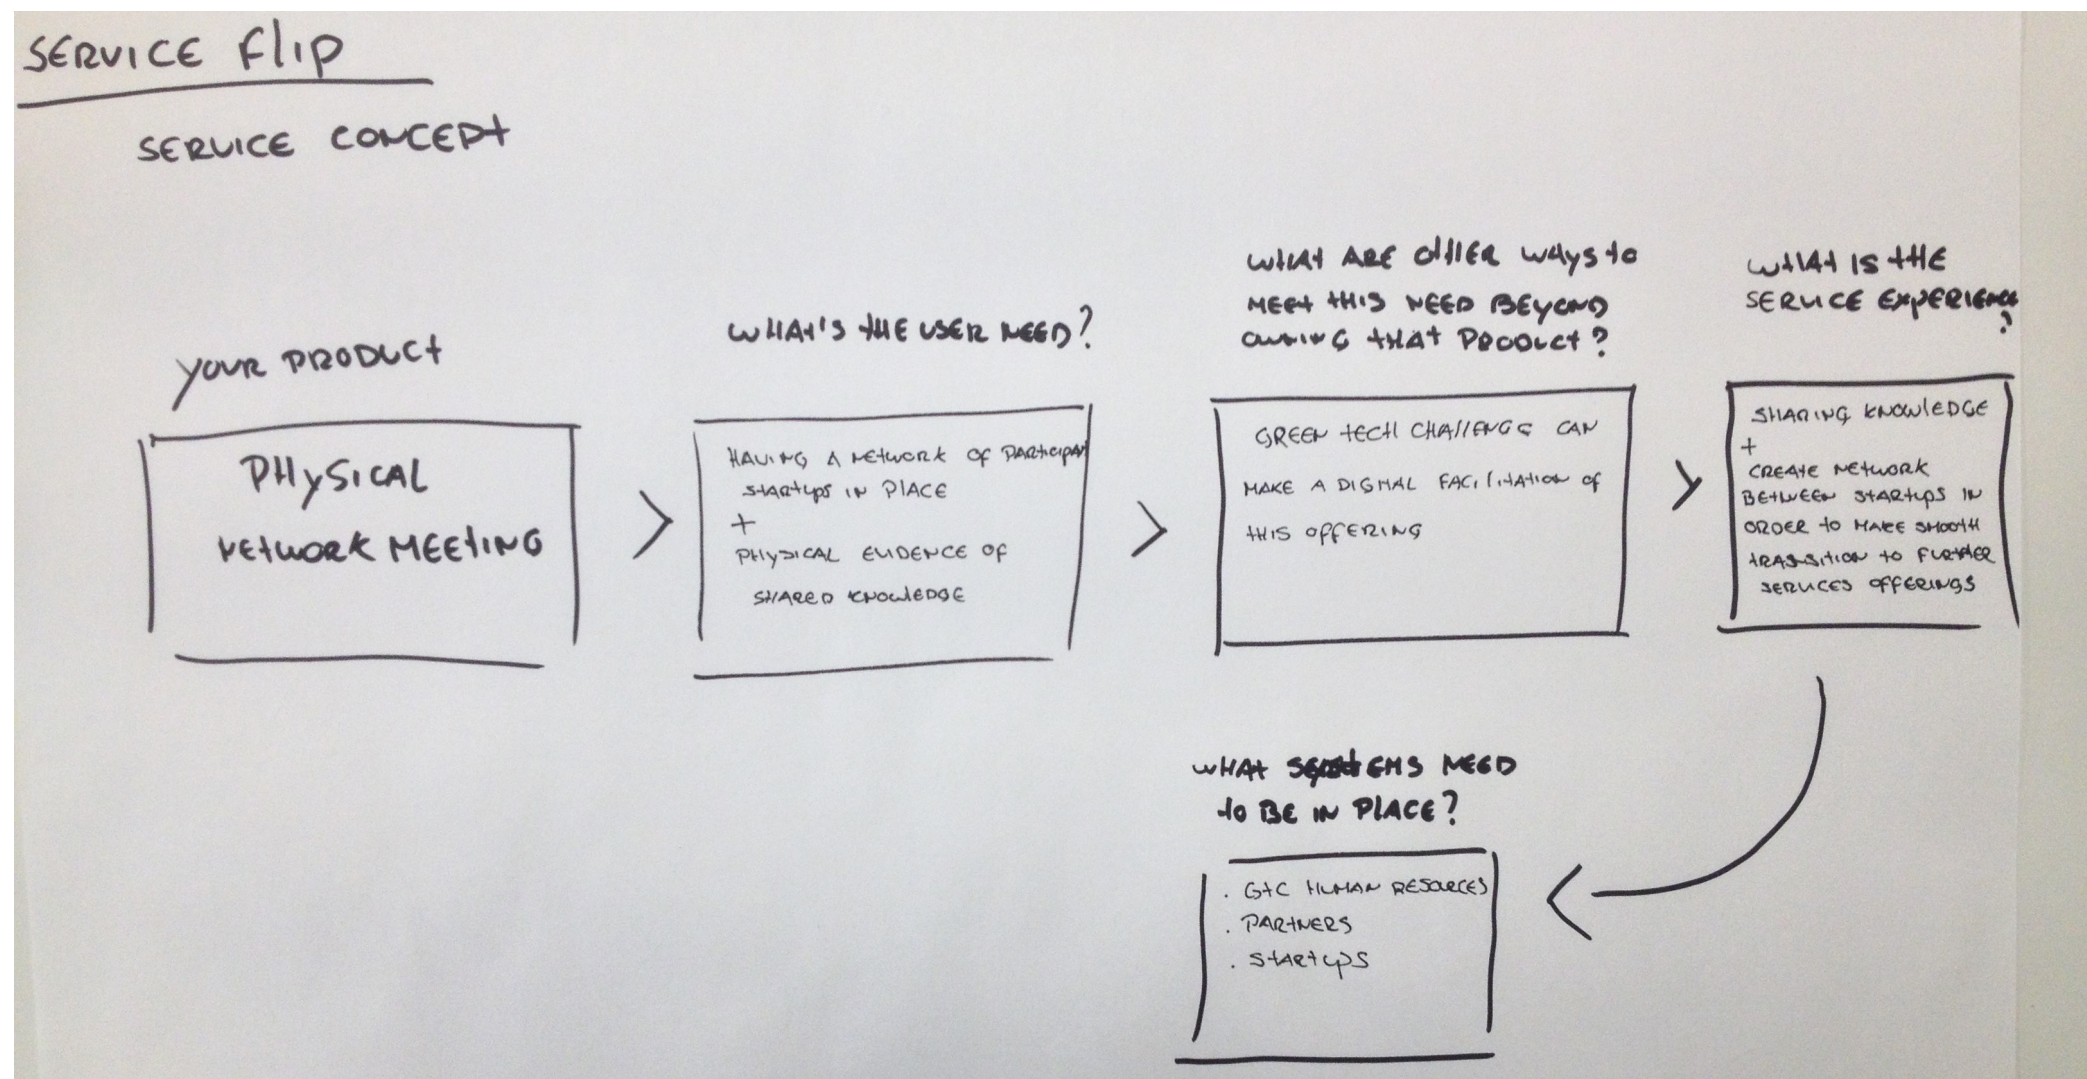 SERVICE FLIP
SERVICE CONCEPT
YOUR PRODUCT
PHYSICAL
NETWORK MEETING
>
WHAT'S THE USER NEED?
HAVING A NETWORK OF PARTICIPANT
STARTUPS IN PLACE
+
PHYSICAL EVIDENCE OF
SHARED KNOWLEDGE
>
WHAT ARE OTHER WAYS TO
MEET THIS NEED BEYOND
OWNING THAT PRODUCT?
GREEN TECH CHALLENGE CAN
MAKE A DIGITAL FACILITATION OF
THIS OFFERING
>
WHAT IS THE
SERVICE EXPERIENCE
?
SHARING KNOWLEDGE
+
CREATE NETWORK
BETWEEN STARTUPS IN
ORDER TO MAKE SMOOTH
TRANSITION TO FURTHER
SERVICES OFFERINGS
WHAT SYSTEMS NEED
TO BE IN PLACE?
. GTC HUMAN RESOURCES
. PARTNERS
. STARTUPS